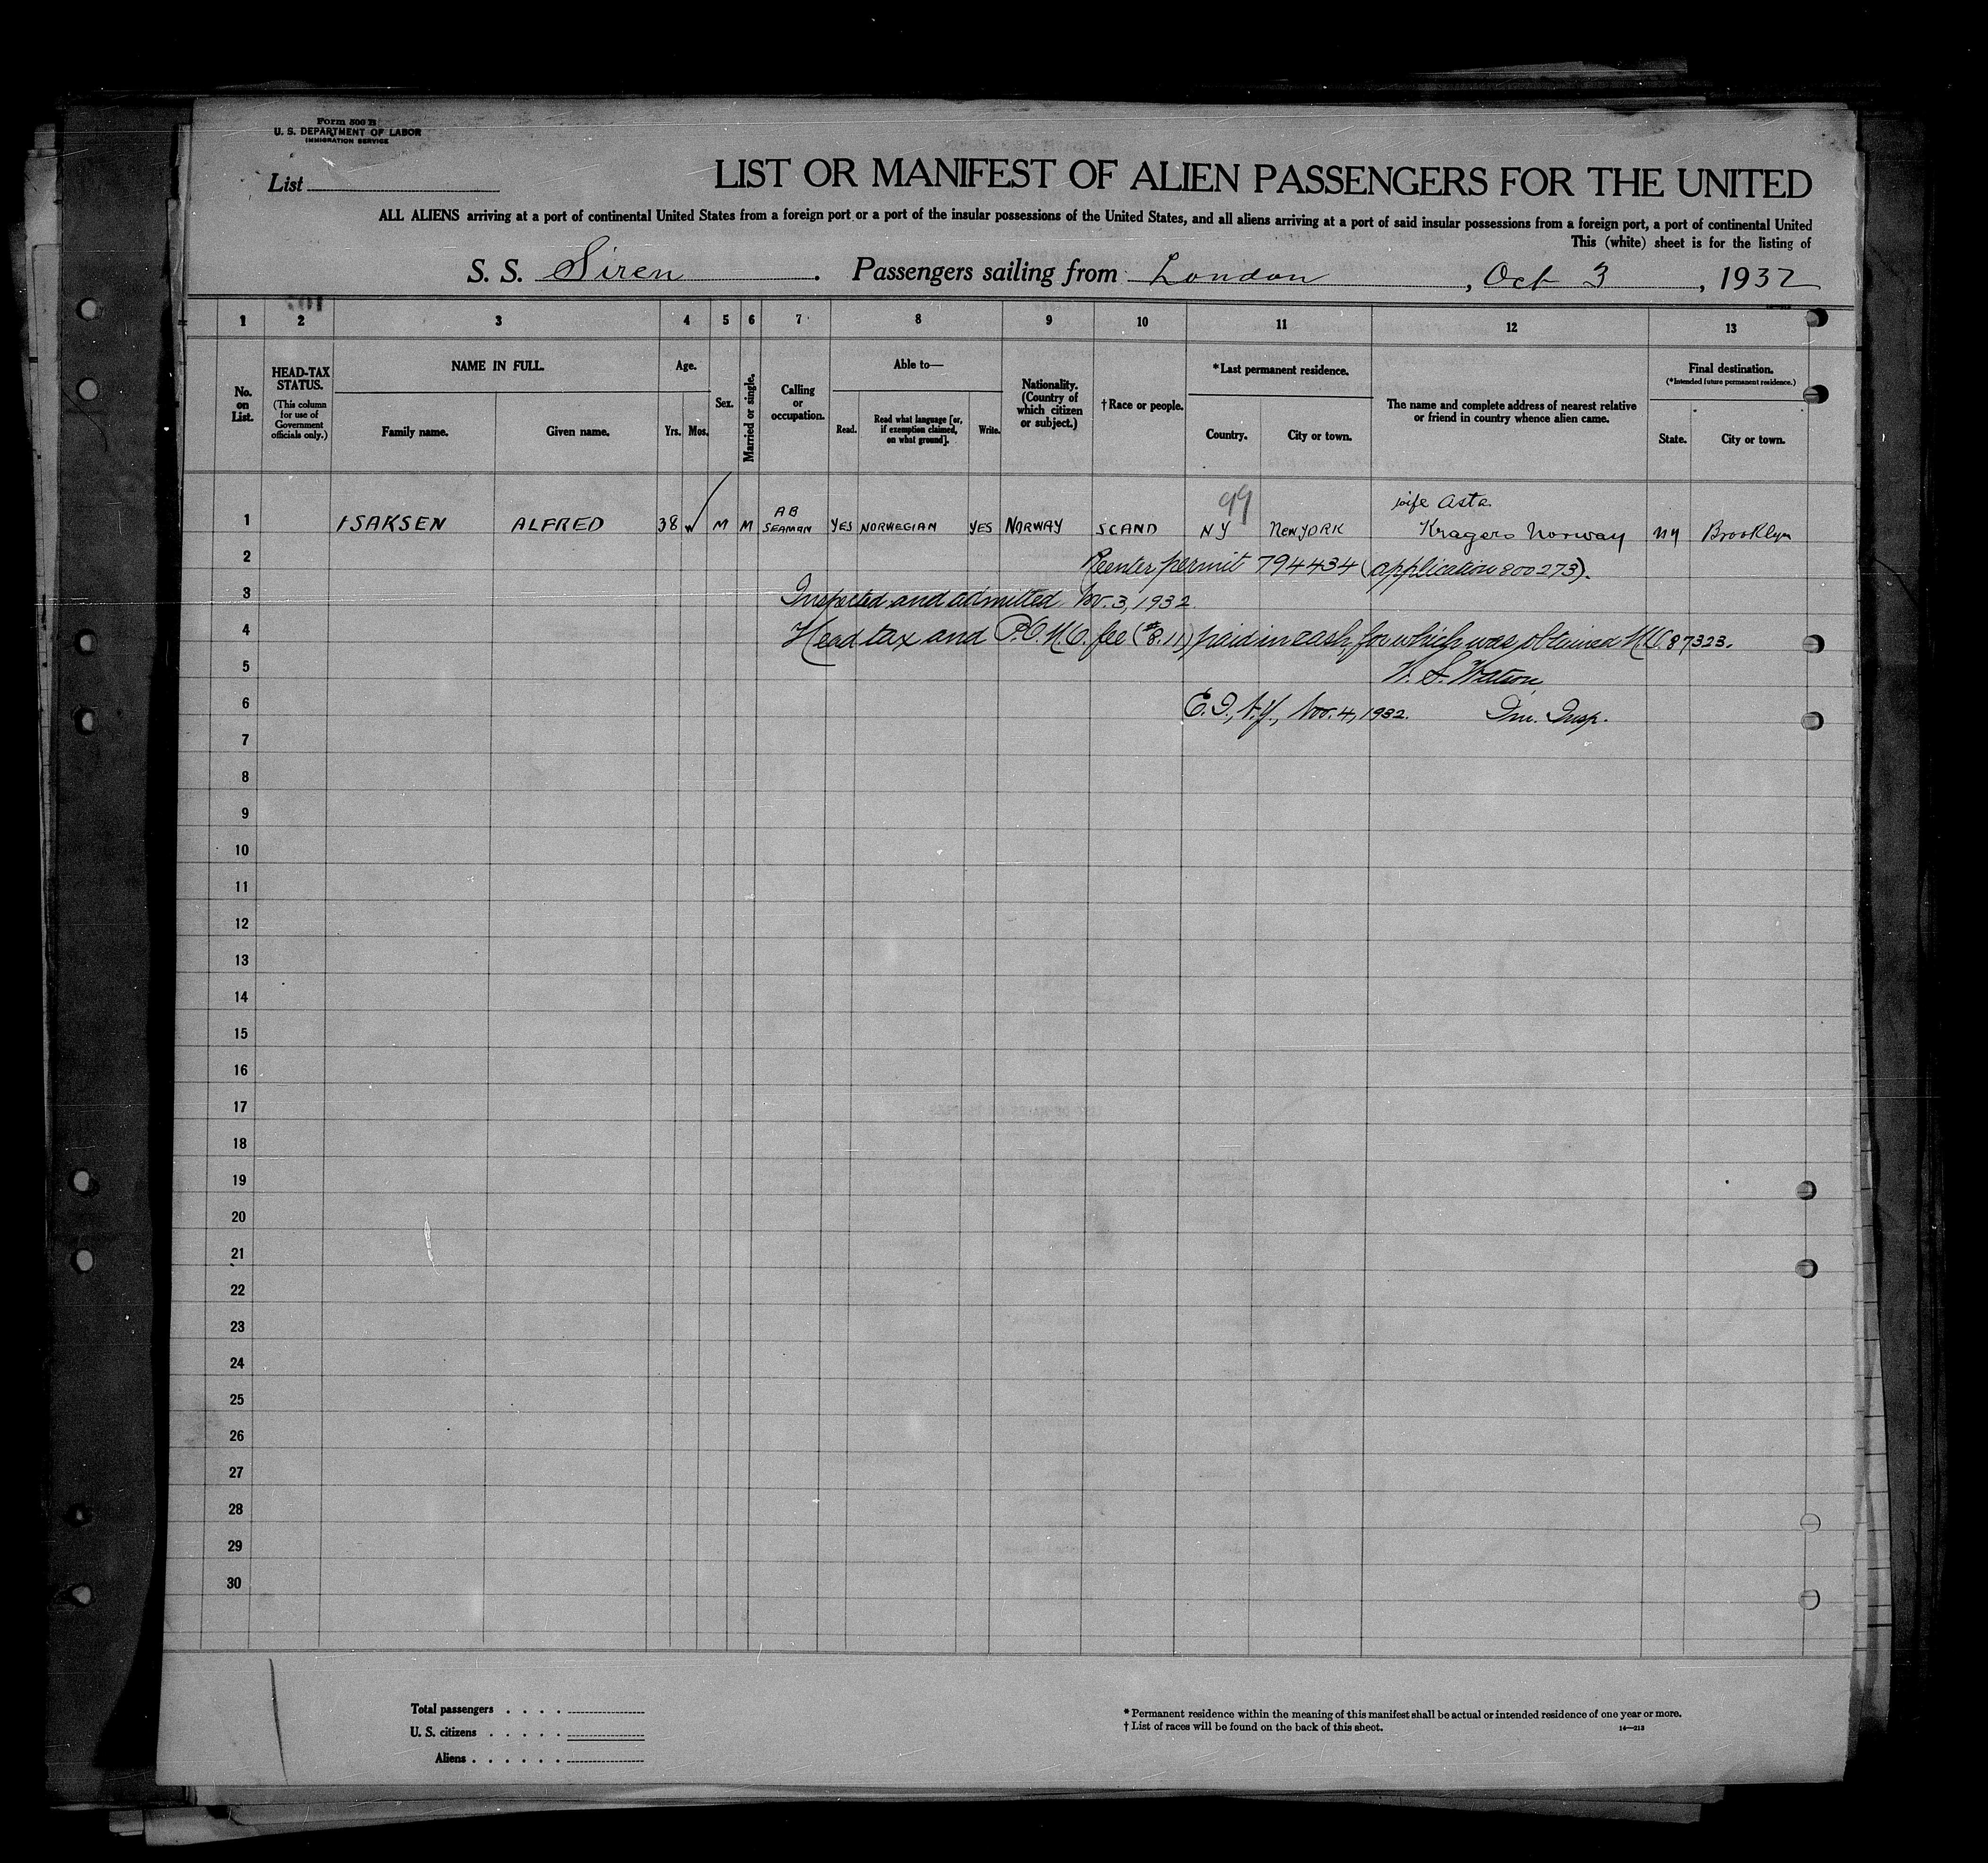 Form 500 B
U. S. DEPARTMENT OF LABOR
IMMIGRATION SERVICE
List
LIST OR MANIFEST OF ALIEN PASSENGERS FOR THE UNITED
ALL ALIENS arriving at a port of continental United States from a foreign port or a port of the insular possessions of the United States, and all aliens arriving at a port of said insular possessions from a foreign port, a port of continental United
This (white) sheet is for the listing of
S. S. Siren. Passengers sailing from London, Oct 3, 1932
1 2 3 4 5 6 7 8 9 10 11 12 13
No. on List.
HEAD-TAX STATUS.
(This column for use of Government officials only.)
NAME IN FULL.
Family name. Given name.
Age.
Yrs. Mos.
Sex.
Married or single.
Calling or occupation.
Able to—
Read. Read what language [or, if exemption claimed, on what ground]. Write.
Nationality. (Country of which citizen or subject.)
†Race or people.
*Last permanent residence.
Country. City or town.
The name and complete address of nearest relative or friend in country whence alien came.
Final destination.
(*Intended future permanent residence.)
State. City or town.
99
wife Asta
1 ISAKSEN ALFRED 38 M M AB SEAMAN YES NORWEGIAN YES NORWAY SCAND NY NEW YORK Kragero Norway NY Brooklyn
2 Reenter permit 794434 (application 800273).
3 Inspected and admitted Nov. 3, 1932.
4 Head tax and fee ($8.11) paid in cash, for which was obtained 87323.
5 W. S. Watson
6 E. I., N.Y., Nov. 4, 1932. Im. Insp.
7
8
9
10
11
12
13
14
15
16
17
18
19
20
21
22
23
24
25
26
27
28
29
30
Total passengers . . . .
U. S. citizens . . . . .
Aliens . . . . . .
* Permanent residence within the meaning of this manifest shall be actual or intended residence of one year or more.
† List of races will be found on the back of this sheet.
14—213